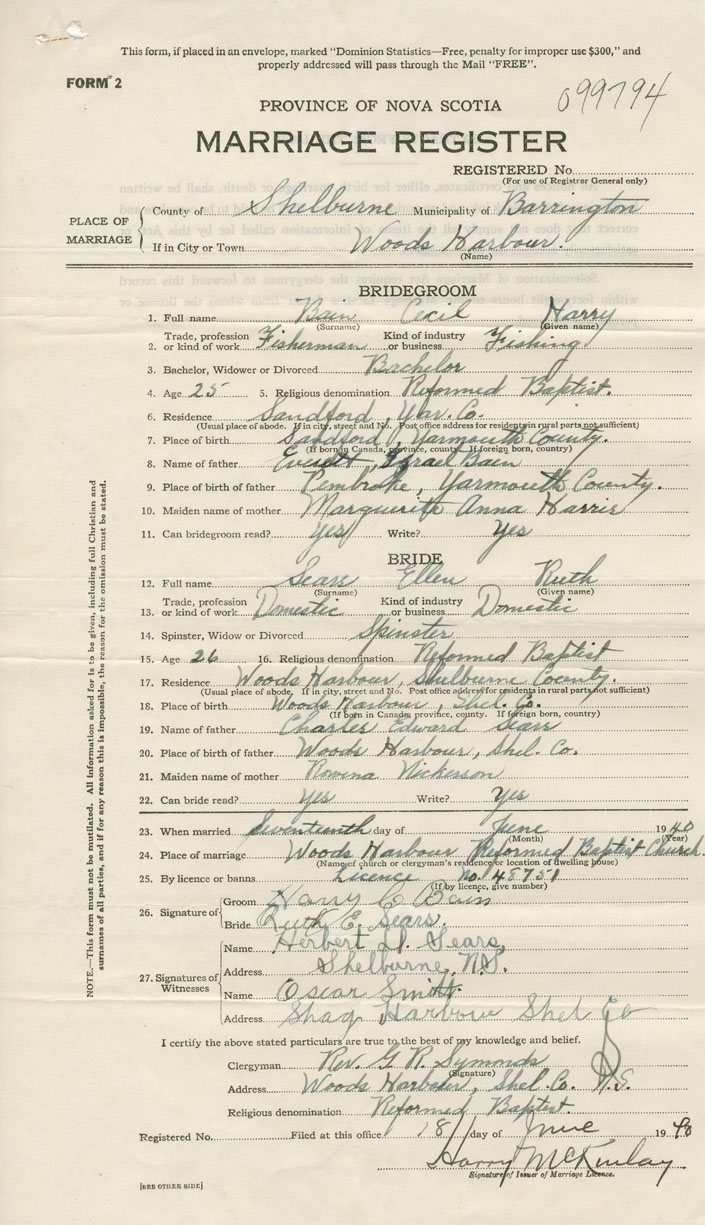 This form, if placed in an envelope, marked "Dominion Statistics—Free, penalty for improper use $300," and
properly addressed will pass through the Mail "FREE".
FORM 2
099794
PROVINCE OF NOVA SCOTIA
MARRIAGE REGISTER
REGISTERED No.
(For use of Registrar General only)
PLACE OF MARRIAGE
County of Shelburne Municipality of Barrington
If in City or Town Woods Harbour.
(Name)
BRIDEGROOM
1. Full name Bain Cecil Harry
(Surname) (Given name)
2. Trade, profession or kind of work Fisherman Kind of industry or business Fishing
3. Bachelor, Widower or Divorced Bachelor
4. Age 25 5. Religious denomination Reformed Baptist.
6. Residence Sandford, Yar. Co.
(Usual place of abode. If in city, street and No. Post office address for residents in rural parts not sufficient)
7. Place of birth Sandford, Yarmouth County.
(If born in Canada, province, county. If foreign born, country)
8. Name of father Everett, Israel Bain
9. Place of birth of father Pembroke, Yarmouth County.
10. Maiden name of mother Marguerite Anna Harris
11. Can bridegroom read? Yes Write? Yes
BRIDE
12. Full name Sears Ellen Ruth
(Surname) (Given name)
13. Trade, profession or kind of work Domestic Kind of industry or business Domestic
14. Spinster, Widow or Divorced Spinster
15. Age 26 16. Religious denomination Reformed Baptist
17. Residence Woods Harbour, Shelburne County.
(Usual place of abode. If in city, street and No. Post office address for residents in rural parts not sufficient)
18. Place of birth Woods Harbour, Shel. Co.
(If born in Canada, province, county. If foreign born, country)
19. Name of father Charles Edward Sears
20. Place of birth of father Woods Harbour, Shel. Co.
21. Maiden name of mother Rowena Nickerson
22. Can bride read? Yes Write? Yes
23. When married Seventeenth day of June 1940
(Month) (Year)
24. Place of marriage Woods Harbour Reformed Baptist Church.
(Name of church or clergyman's residence or location of dwelling house)
25. By licence or banns Licence No. 48751
(If by licence, give number)
26. Signature of
Groom Harry C Bain
Bride Ruth E. Sears.
27. Signatures of Witnesses
Name Herbert D. Sears,
Address Shelburne, N.S.
Name Oscar Smith.
Address Shag Harbour Shel Co
I certify the above stated particulars are true to the best of my knowledge and belief.
Clergyman Rev. G. R. Symonds
(Signature)
Address Woods Harbour, Shel. Co. N.S.
Religious denomination Reformed Baptist.
Registered No. Filed at this office 18 day of June 1940
Harry McKinlay
Signature of Issuer of Marriage Licence.
[SEE OTHER SIDE]
NOTE.—This form must not be mutilated. All information asked for is to be given, including full Christian and
surnames of all parties, and if for any reason this is impossible, the reason for the omission must be stated.